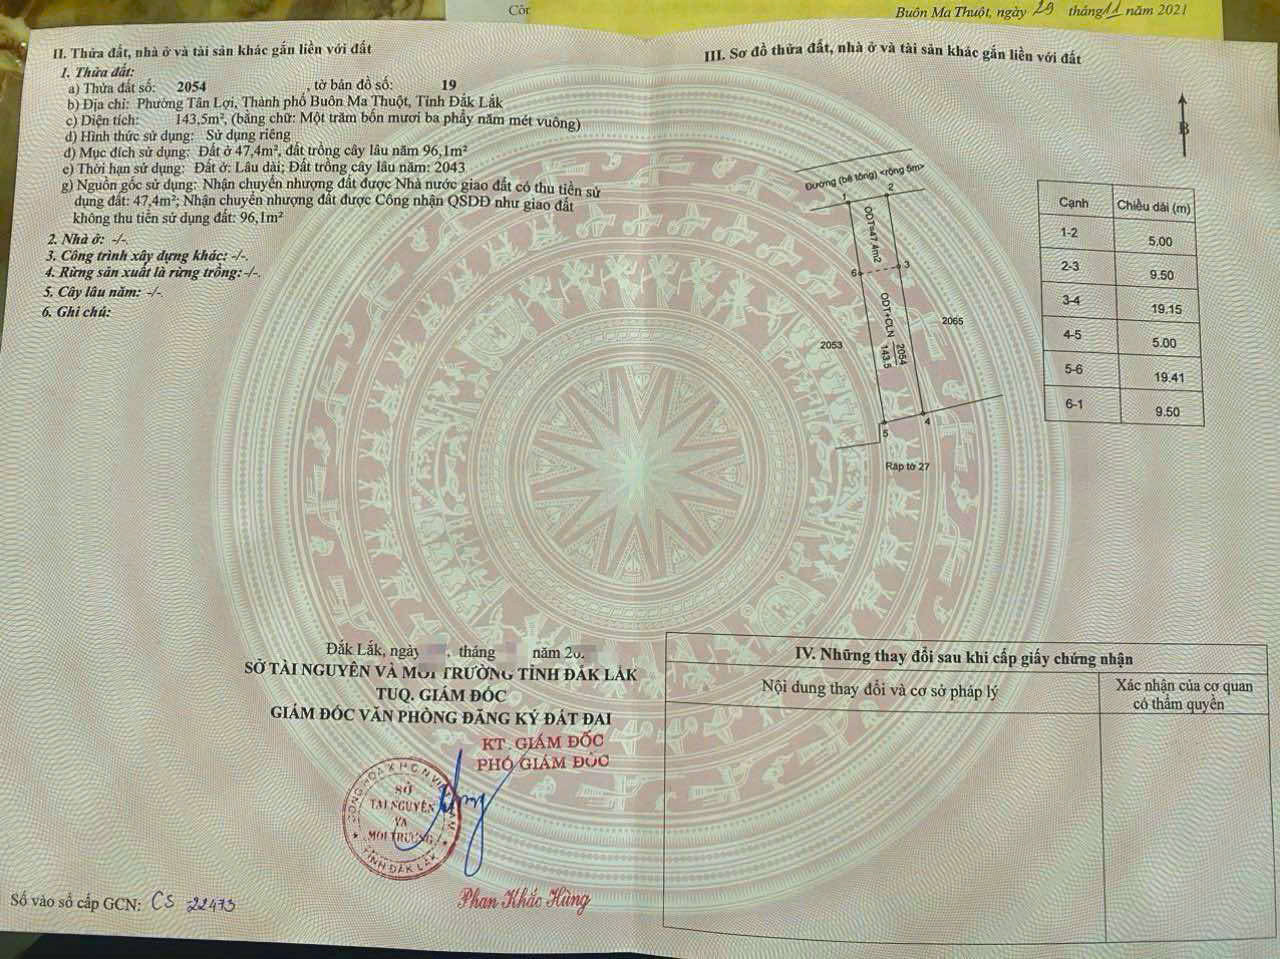 Buôn Ma Thuột, ngày 29 tháng 11 năm 2021
II. Thửa đất, nhà ở và tài sản khác gắn liền với đất
1. Thửa đất:
a) Thửa đất số: 2054 , tờ bản đồ số: 19
b) Địa chỉ: Phường Tân Lợi, Thành phố Buôn Ma Thuột, Tỉnh Đắk Lắk
c) Diện tích: 143,5m², (bằng chữ: Một trăm bốn mươi ba phẩy năm mét vuông)
d) Hình thức sử dụng: Sử dụng riêng
đ) Mục đích sử dụng: Đất ở 47,4m², đất trồng cây lâu năm 96,1m²
e) Thời hạn sử dụng: Đất ở: Lâu dài; Đất trồng cây lâu năm: 2043
g) Nguồn gốc sử dụng: Nhận chuyển nhượng đất được Nhà nước giao đất có thu tiền sử
dụng đất: 47,4m²; Nhận chuyển nhượng đất được Công nhận QSDĐ như giao đất
không thu tiền sử dụng đất: 96,1m²
2. Nhà ở: -/-.
3. Công trình xây dựng khác: -/-.
4. Rừng sản xuất là rừng trồng: -/-.
5. Cây lâu năm: -/-.
6. Ghi chú:
III. Sơ đồ thửa đất, nhà ở và tài sản khác gắn liền với đất
B
Đường (bê tông) <rộng 6m>
1
2
ODT=47.4m2
6
3
ODT+CLN 2054
143.5
2053
2065
5
4
Ráp tờ 27
Cạnh Chiều dài (m)
1-2 5.00
2-3 9.50
3-4 19.15
4-5 5.00
5-6 19.41
6-1 9.50
Đắk Lắk, ngày , tháng năm 20
SỞ TÀI NGUYÊN VÀ MÔI TRƯỜNG TỈNH ĐẮK LẮK
TUQ. GIÁM ĐỐC
GIÁM ĐỐC VĂN PHÒNG ĐĂNG KÝ ĐẤT ĐAI
KT. GIÁM ĐỐC
PHÓ GIÁM ĐỐC
CỘNG HÒA X.H.C.N VIỆT NAM
SỞ
TÀI NGUYÊN
VÀ
MÔI TRƯỜNG
TỈNH ĐẮK LẮK
Phan Khắc Hùng
Số vào sổ cấp GCN: CS 22473
IV. Những thay đổi sau khi cấp giấy chứng nhận
Nội dung thay đổi và cơ sở pháp lý
Xác nhận của cơ quan
có thẩm quyền